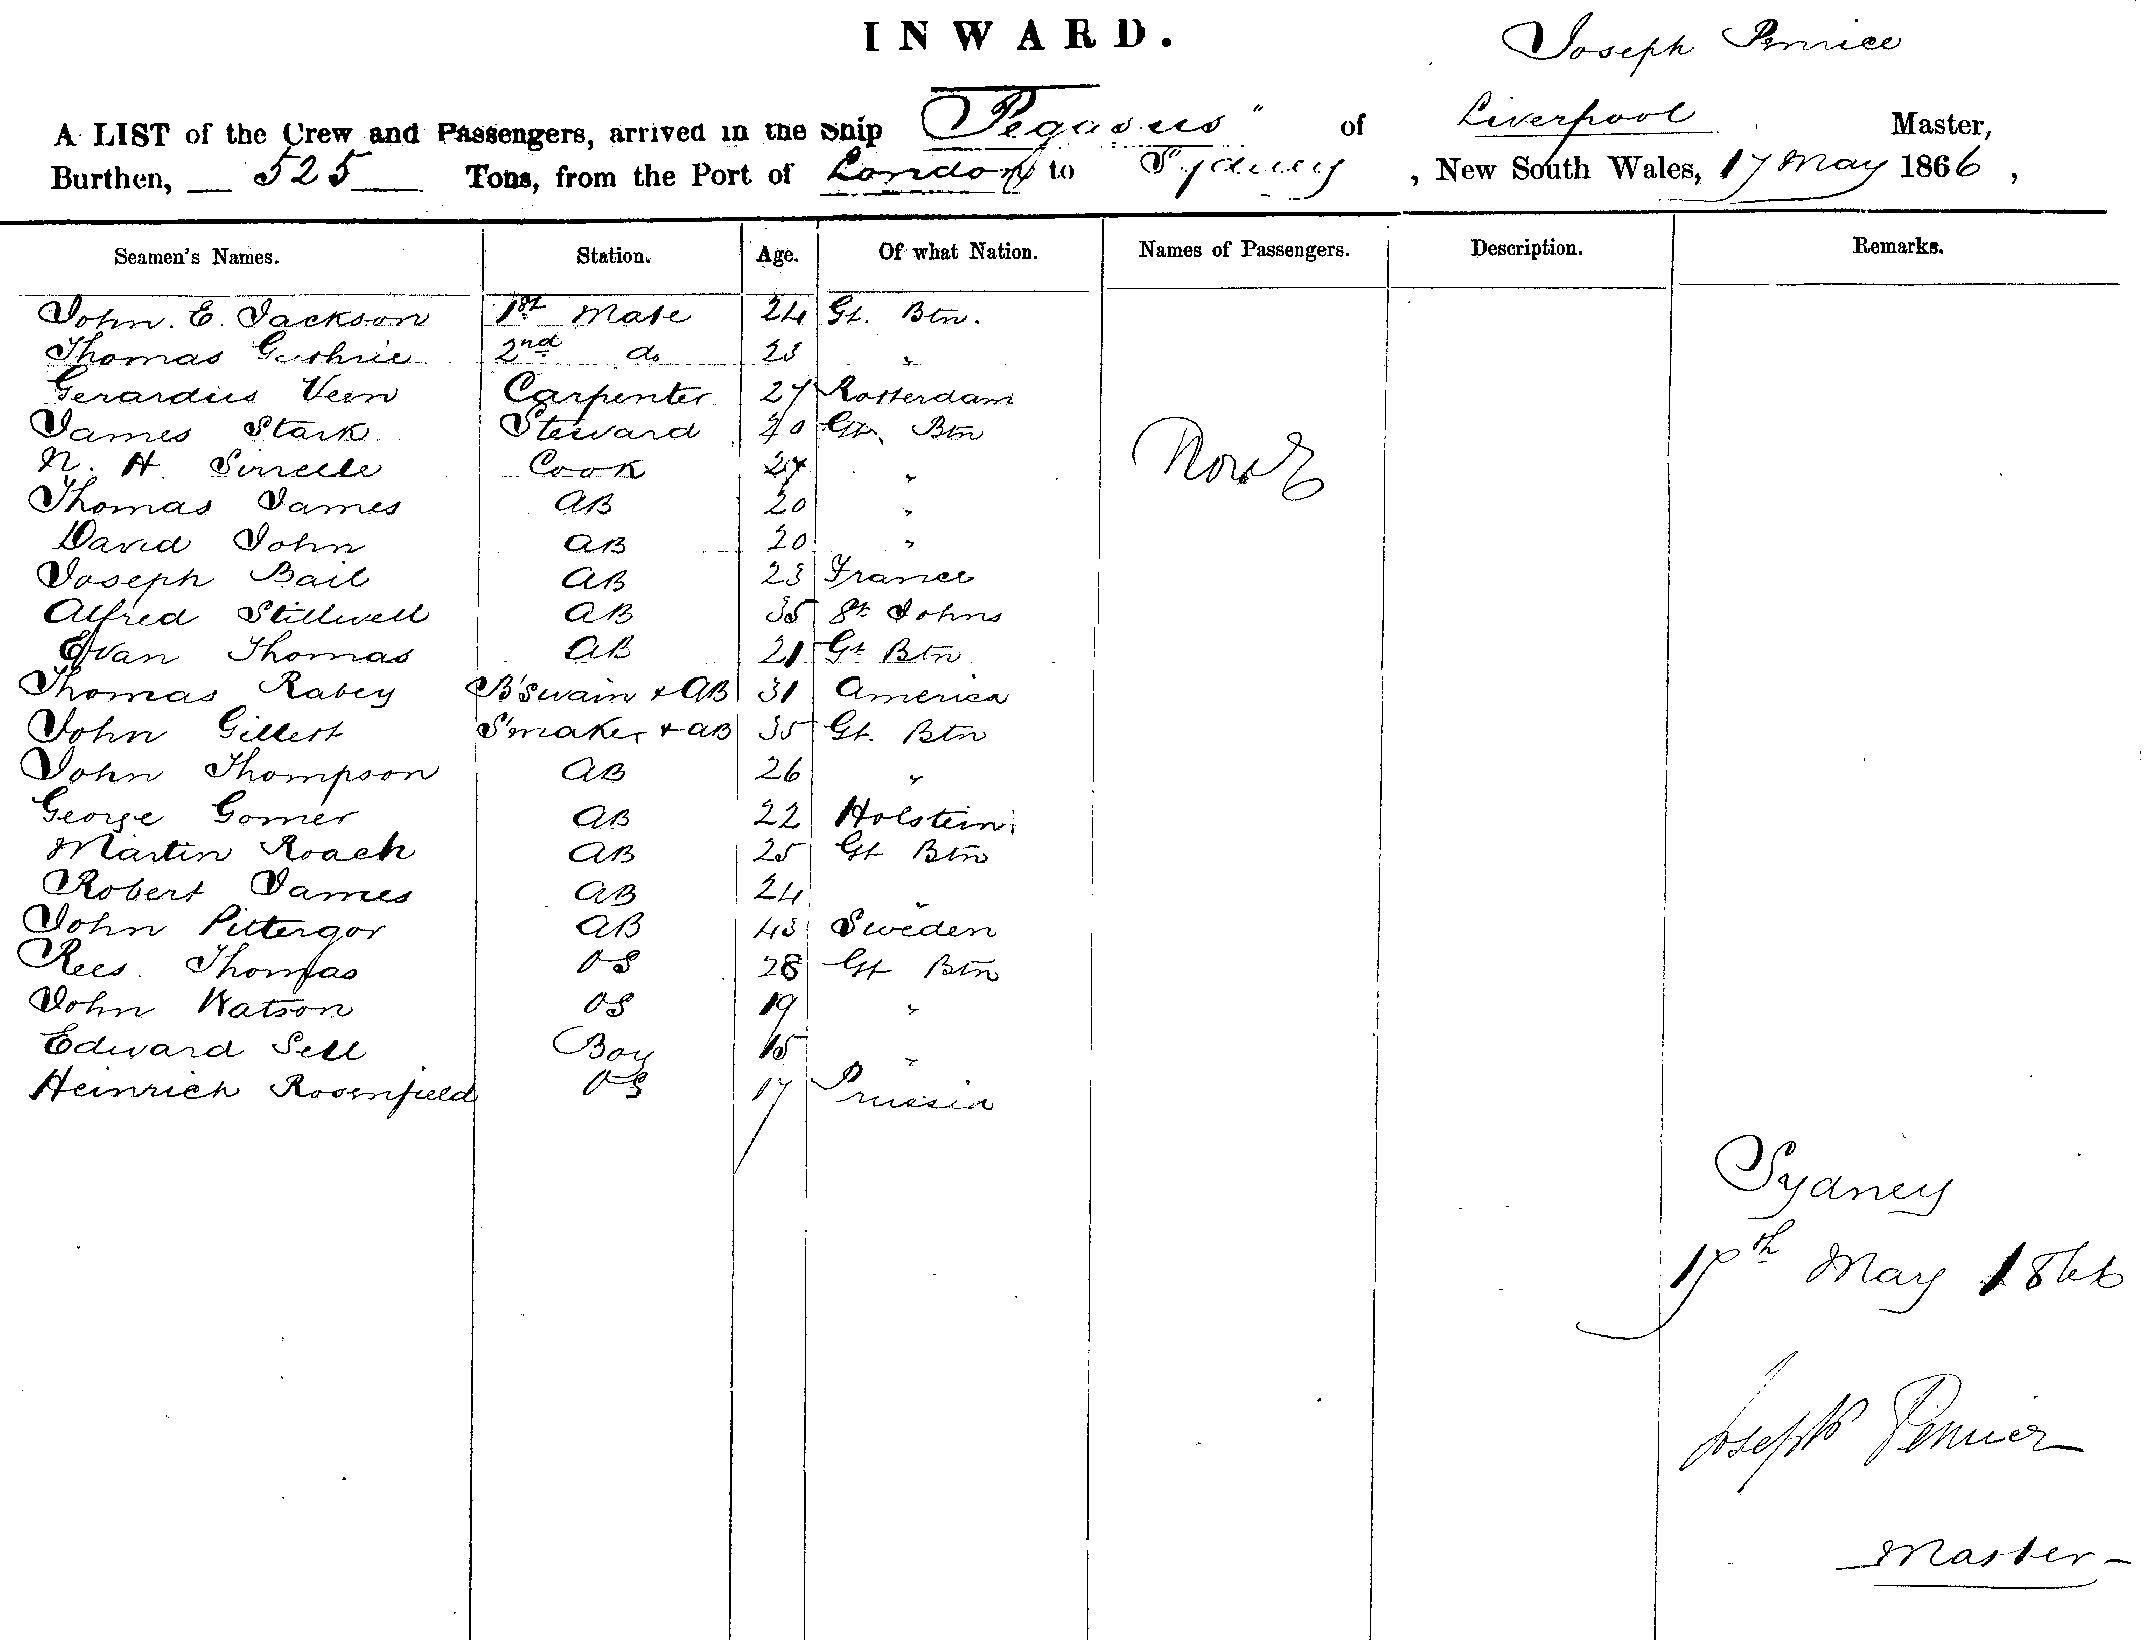 INWARD.
Joseph Pennice
A LIST of the Crew and Passengers, arrived in the Ship "Pegasus" of Liverpool Master,
Burthen, 525 Tons, from the Port of London to Sydney, New South Wales, 17 May 1866,
Seamen's Names. Station. Age. Of what Nation. Names of Passengers. Description. Remarks.
John. E. Jackson 1st Mate 24 Gt. Btn.
Thomas Guthrie 2nd do 23 "
Gerardus Veen Carpenter 27 Rotterdam
James Stark Steward 40 Gt. Btn
None
N. H. Cook 27 "
Thomas James AB 20 "
David John AB 20 "
Joseph Bail AB 23 France
Alfred Stillwell AB 35 St Johns
Evan Thomas AB 21 Gt Btn
Thomas Rabey B'swain + AB 31 America
John Gillert S'maker + AB 35 Gt. Btn
John Thompson AB 26 "
George Gomer AB 22 Holstein
Martin Roach AB 25 Gt Btn
Robert James AB 24 "
John Pittergor AB 43 Sweden
Rees Thomas OS 28 Gt Btn
John Watson OS 19 "
Edward Sell Boy 15 "
Heinrich Rosenfield OS 17 Prussia
Sydney
17th May 1866
Joseph
Master